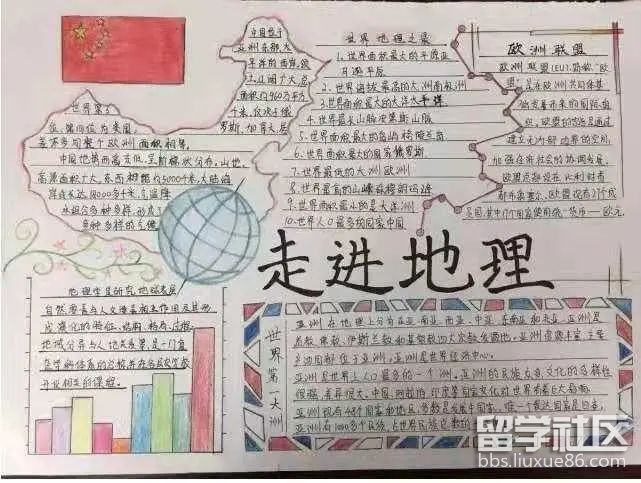 世界地理之最
1.世界面积最大的平原亚
马逊平原
2.世界海拔最高的大洲南极洲
3.世界面积最大的大洋太平洋
4.世界最长山脉安第斯山脉
5.世界面积最大的岛屿格陵兰岛
6.世界面积最大的国家俄罗斯
7.世界最低的大洲欧洲
8.世界最高的山峰珠穆朗玛峰
9.世界面积最小的是大洋洲
10.世界人口最多的国家中国
欧洲联盟
欧洲联盟(EU),简称"欧
盟"是在欧洲共同体基
建立无内部边界的空间,
加强经济社会的协调发展,
欧盟总部设在比利时首
都布鲁塞尔,欧盟现有27个成
员国,其中17个国家使用统一货币——欧元.
中国位于
亚洲东部,太
平洋的西岸,领
土辽阔广大,总
面积约960万平方
千米,仅次于俄
罗斯、加拿大,居
世界第三
差不多同整个欧洲面积相等.
中国地势西高东低,呈阶梯状分布,山地、
高原面积广大,东西相距约5000千米,大陆海
岸线长达18000多千米,气温降
水组合多种多样,形成了
多种多样的气候
走进地理
地理学是研究地球表层
自然要素与人文要素相互作用及其形
成演化的特征、结构、格局、过程、
地域分异与人地关系等.是一门复
杂学科体系的总称,并在各层次学校
开设相关的课程.
世界第一大洲
亚洲在地理上分为东亚、南亚、西亚、中亚、东南亚和北亚.亚洲是
佛教、印度教、伊斯兰教和基督教四大宗教发源地.亚洲资源丰富,主要
亚洲是世界上人口最多的一个洲.亚洲的民族众多,文化的多样性
很强,差异很大.中国、阿拉伯、印度等国家文化对世界有着巨大影响.
亚洲现有48个国家和地区,多数是发展中国家,唯一个发达国家是日本.
留学社区
bbs.liuxue86.com